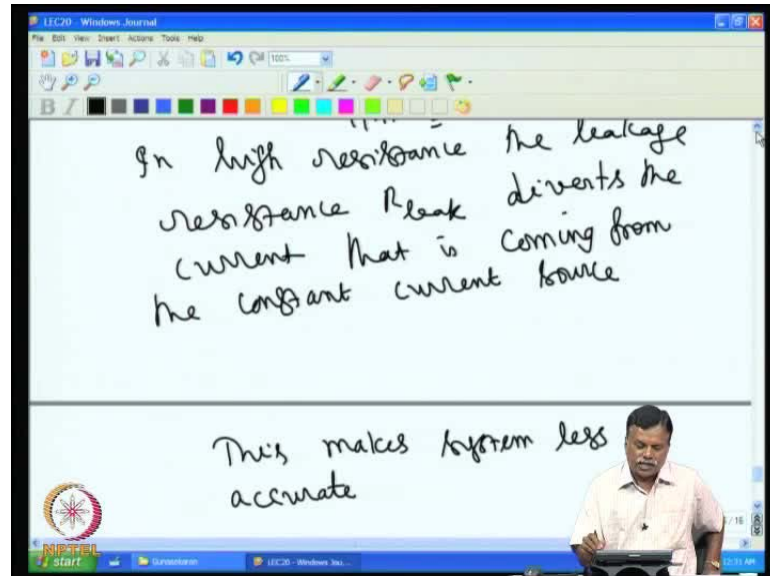 LEC20 - Windows Journal
File Edit View Insert Actions Tools Help
100%
B I
In high resistance the leakage
resistance Rleak diverts the
current that is coming from
the constant current source
This makes system less
accurate
/ 16
NPTEL
start
Gunasekaran
LEC20 - Windows Jou...
12:31 AM